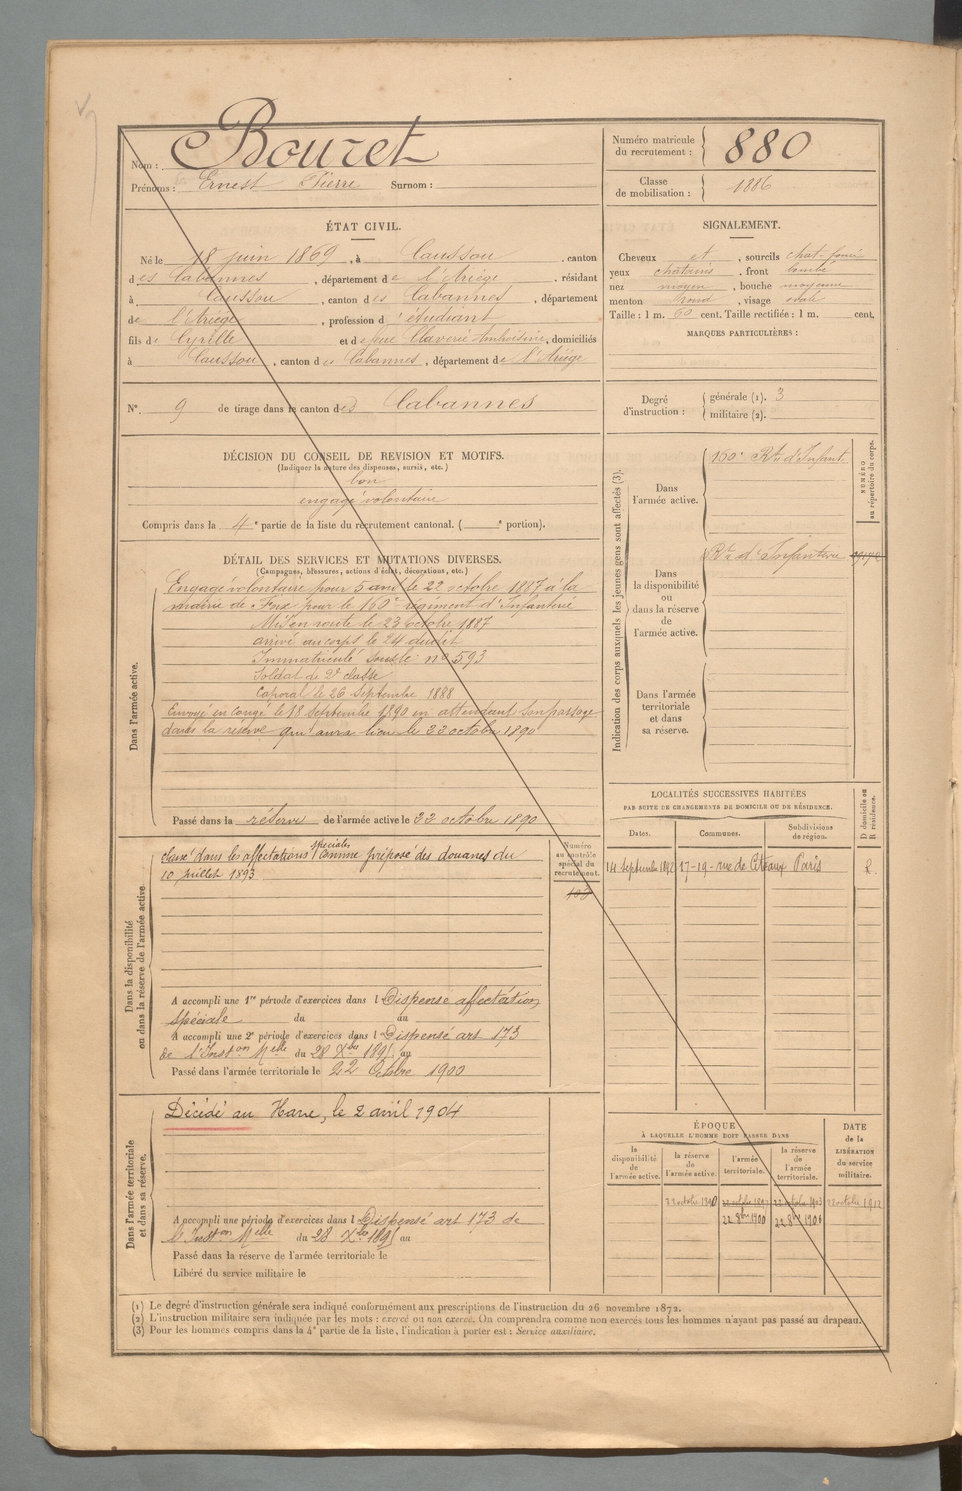 Nom : Bouzet
Prénoms : Ernest Pierre Surnom :
Numéro matricule du recrutement : 880
Classe de mobilisation : 1886
ÉTAT CIVIL.
Né le 18 juin 1869, à Caussou, canton
des Cabannes, département de l'Ariège, résidant
à Caussou, canton des Cabannes, département
de l'Ariège, profession d'étudiant
fils de Cyrille et de feue Claverie Ambroisine, domiciliés
à Caussou, canton des Cabannes, département de l'Ariège
N° 9 de tirage dans le canton des Cabannes
SIGNALEMENT.
Cheveux et, sourcils chat-foncé
yeux chatains, front bombé
nez moyen, bouche moyenne
menton rond, visage ovale
Taille : 1 m. 60 cent. Taille rectifiée : 1 m. cent.
MARQUES PARTICULIÈRES :
Degré d'instruction : générale (1). 3
militaire (2).
DÉCISION DU CONSEIL DE REVISION ET MOTIFS.
(Indiquer la nature des dispenses, sursis, etc.)
bon
engagé volontaire
Compris dans la 4e partie de la liste du recrutement cantonal. ( e portion).
DÉTAIL DES SERVICES ET MUTATIONS DIVERSES.
(Campagnes, blessures, actions d'éclat, décorations, etc.)
Dans l'armée active.
Engagé volontaire pour 5 ans le 22 octobre 1887 à la
mairie de Foix pour le 160e régiment d'Infanterie
Mis en route le 23 octobre 1887
arrivé au corps le 24 dudit
Immatriculé sous le n° 593
Soldat de 2e classe
Caporal le 26 Septembre 1888
Envoyé en congé le 18 Septembre 1890 en attendant son passage
dans la réserve qui aura lieu le 22 octobre 1890
Passé dans la réserve de l'armée active le 22 octobre 1890
Indication des corps auxquels les jeunes gens sont affectés (3).
NUMÉRO au répertoire du corps.
Dans l'armée active.
160e Rt d'Infant.
Dans la disponibilité ou dans la réserve de l'armée active.
Rt d'Infanterie
Dans l'armée territoriale et dans sa réserve.
LOCALITÉS SUCCESSIVES HABITÉES
PAR SUITE DE CHANGEMENTS DE DOMICILE OU DE RÉSIDENCE.
Dates. Communes. Subdivisions de région. D domicile ou R résidence.
14 Septembre 1892 17-19 - rue de Citeaux Paris R.
Dans la disponibilité ou dans la réserve de l'armée active
Numéro au contrôle spécial du recrutement.
Classé dans les affectations spéciales comme préposé des douanes du
10 juillet 1893
A accompli une 1re période d'exercices dans l Dispense affectation
spéciale du au
A accompli une 2e période d'exercices dans l Dispensé art 173
de l'Inston Melle du 28 Xbre 1895 au
Passé dans l'armée territoriale le 22 Octobre 1900
Dans l'armée territoriale et dans sa réserve.
Décédé au Havre, le 2 avril 1904
A accompli une période d'exercices dans l Dispensé art 173 de
l'Inston Melle du 28 Xbre 1895 au
Passé dans la réserve de l'armée territoriale le
Libéré du service militaire le
ÉPOQUE
À LAQUELLE L'HOMME DOIT PASSER DANS
la disponibilité de l'armée active. la réserve de l'armée active. l'armée territoriale. la réserve de l'armée territoriale. DATE de la LIBÉRATION du service militaire.
22 octobre 1912
22 8bre 1900 22 8bre 1906
(1) Le degré d'instruction générale sera indiqué conformément aux prescriptions de l'instruction du 26 novembre 1872.
(2) L'instruction militaire sera indiquée par les mots : exercé ou non exercé. On comprendra comme non exercés tous les hommes n'ayant pas passé au drapeau.
(3) Pour les hommes compris dans la 4e partie de la liste, l'indication à porter est : Service auxiliaire.